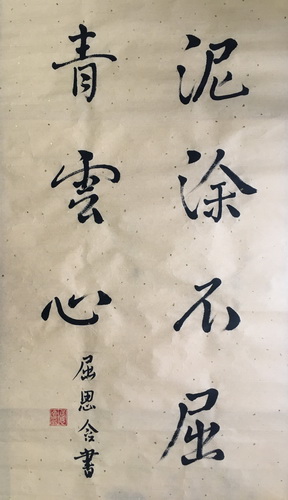 泥涂不屈
青雲心
屈思含書